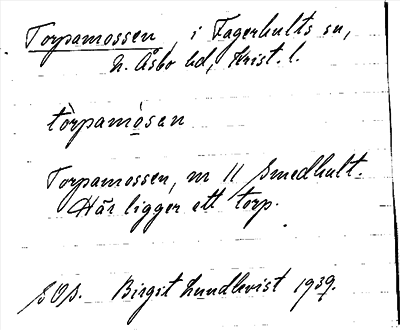 Torpamossen, i Fagerhults sn,
N. Åsbo hd, Krist. l.
tòrpamósen
Torpamossen, m 11 Smedhult.
Här ligger ett torp.
SOA. Birgit Lundkvist 1939.